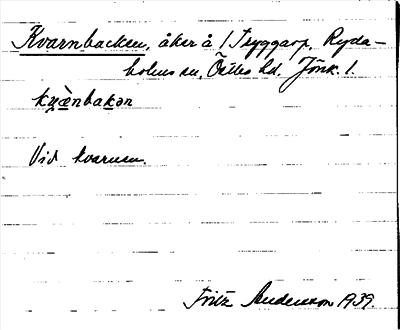 Kvarnbacken, åker å 1 Tryggarp, Ryda-
holms sn, Östbo hd. Jönk. l.
kvæ̀nbakən
Vid kvarnen.
Fritz Anderson 1939